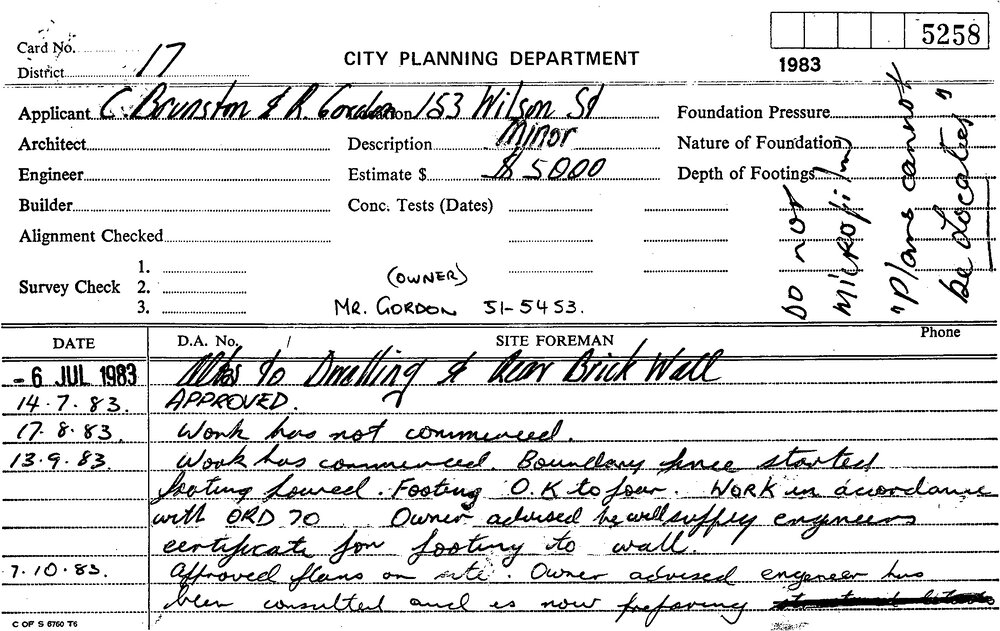 5258
Card No. 17
District
CITY PLANNING DEPARTMENT
1983
Applicant C. Brunston & R. Gordon 153 Wilson St
Foundation Pressure
Architect
Description Minor
Nature of Foundation
Engineer
Estimate $ $ 5000
Depth of Footings
Builder
Conc. Tests (Dates)
Alignment Checked
Survey Check
1.
2.
3.
(OWNER)
MR. GORDON 51-5453.
DO NOT
MICROFILM
"Plans cannot
be Located"
DATE
D.A. No. /
SITE FOREMAN
Phone
- 6 JUL 1983 to Dwelling & Rear Brick Wall
14.7.83. APPROVED.
17.8.83. Work has not commenced.
13.9.83. Work has commenced. Boundary fence started
footing poured. Footing O.K to pour. WORK in accordance
with ORD 70 Owner advised he will supply engineers
certificate for footing to wall.
7.10.83. Approved plans on site. Owner advised engineer has
been consulted and is now preparing
C OF S 6760 T6